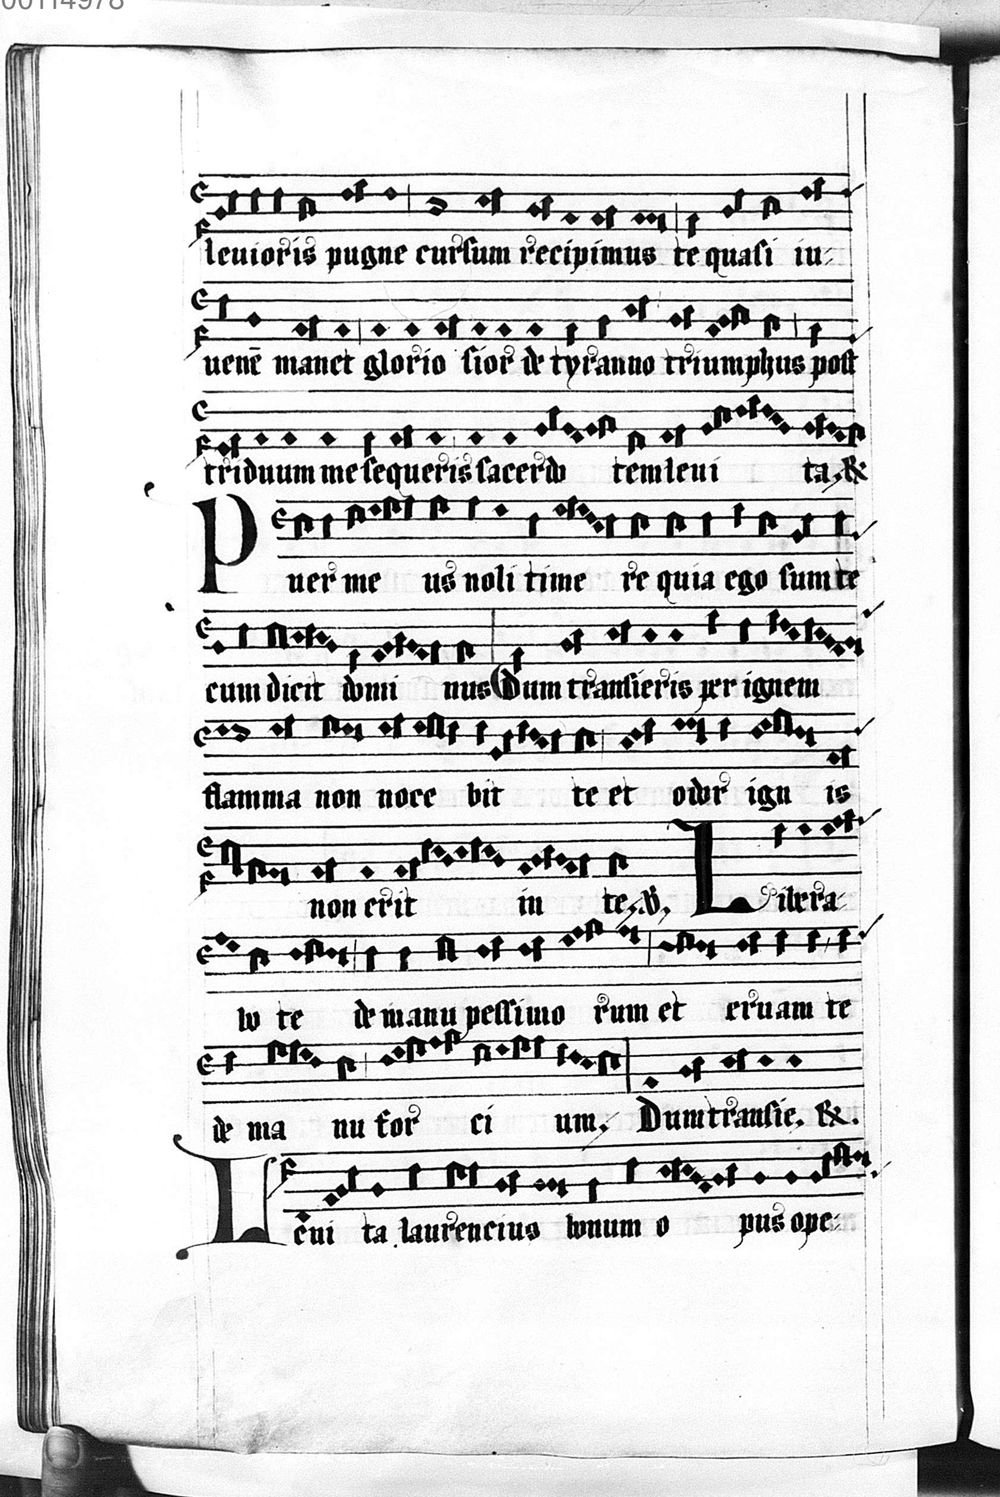 00114978
leuioris pugne cursum recipimus te quasi iu-
uenē manet glorio sior de tyranno triumphus post
triduum me sequeris sacerdo tem leui ta, &
Puer me us noli time re quia ego sum te
cum dicit domi nus Dum transieris per ignem
flamma non noce bit te et odor ign is
non erit in te, V, Libera-
bo te de manu pessimo rum et eruam te
de ma nu for ci um, Dum transie, &.
Leui ta laurencius bonum o pus ope-